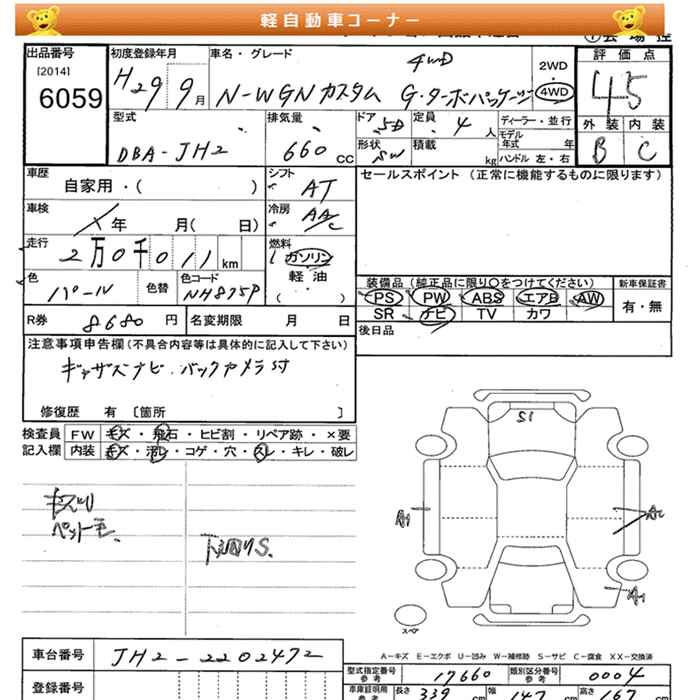 軽自動車コーナー
出品番号 初度登録年月 車名・グレード 4WD 2WD 評価点
[2014] 6059 H29 9月 N-WGNカスタム G・ターボパッケージ 4WD 4.5
型式 排気量 ドア 5D 定員 4人 ディーラー・並行 外装 内装
DBA-JH2 660CC 形状 SW 積載 kg モデル年式 年 ハンドル 左・右 B C
車歴 自家用・( ) シフト AT セールスポイント (正常に機能するものに限ります)
車検 年 月( 日) 冷房 AAC
走行 2万0千011km 燃料 ガソリン 軽油 ( )
色 パール 色替 色コード NH875P 装備品 (純正品に限り○をつけてください) 新車保証書
PS PW ABS エアB AW 有・無
SR ナビ TV カワ
R券 8680円 名変期限 月 日 後日品
注意事項申告欄 (不具合内容等は具体的に記入して下さい)
ギャザズナビ.バックカメラ付
修復歴 有 〔箇所 〕
検査員 FW キズ・飛石・ヒビ割・リペア跡・×要
記入欄 内装 キズ・汚レ・コゲ・穴・スレ・キレ・破レ
S1
キズU
ペット毛.
下廻りS.
A1
A1
スペア
A－キズ E－エクボ U－凹み W－補修跡 S－サビ C－腐食 XX－交換済
車台番号 JH2-2202472 型式指定番号 参考 17660 類別区分番号 参考 0004
登録番号 車庫証明用 参考 長さ 339cm 幅 147cm 高さ 167cm